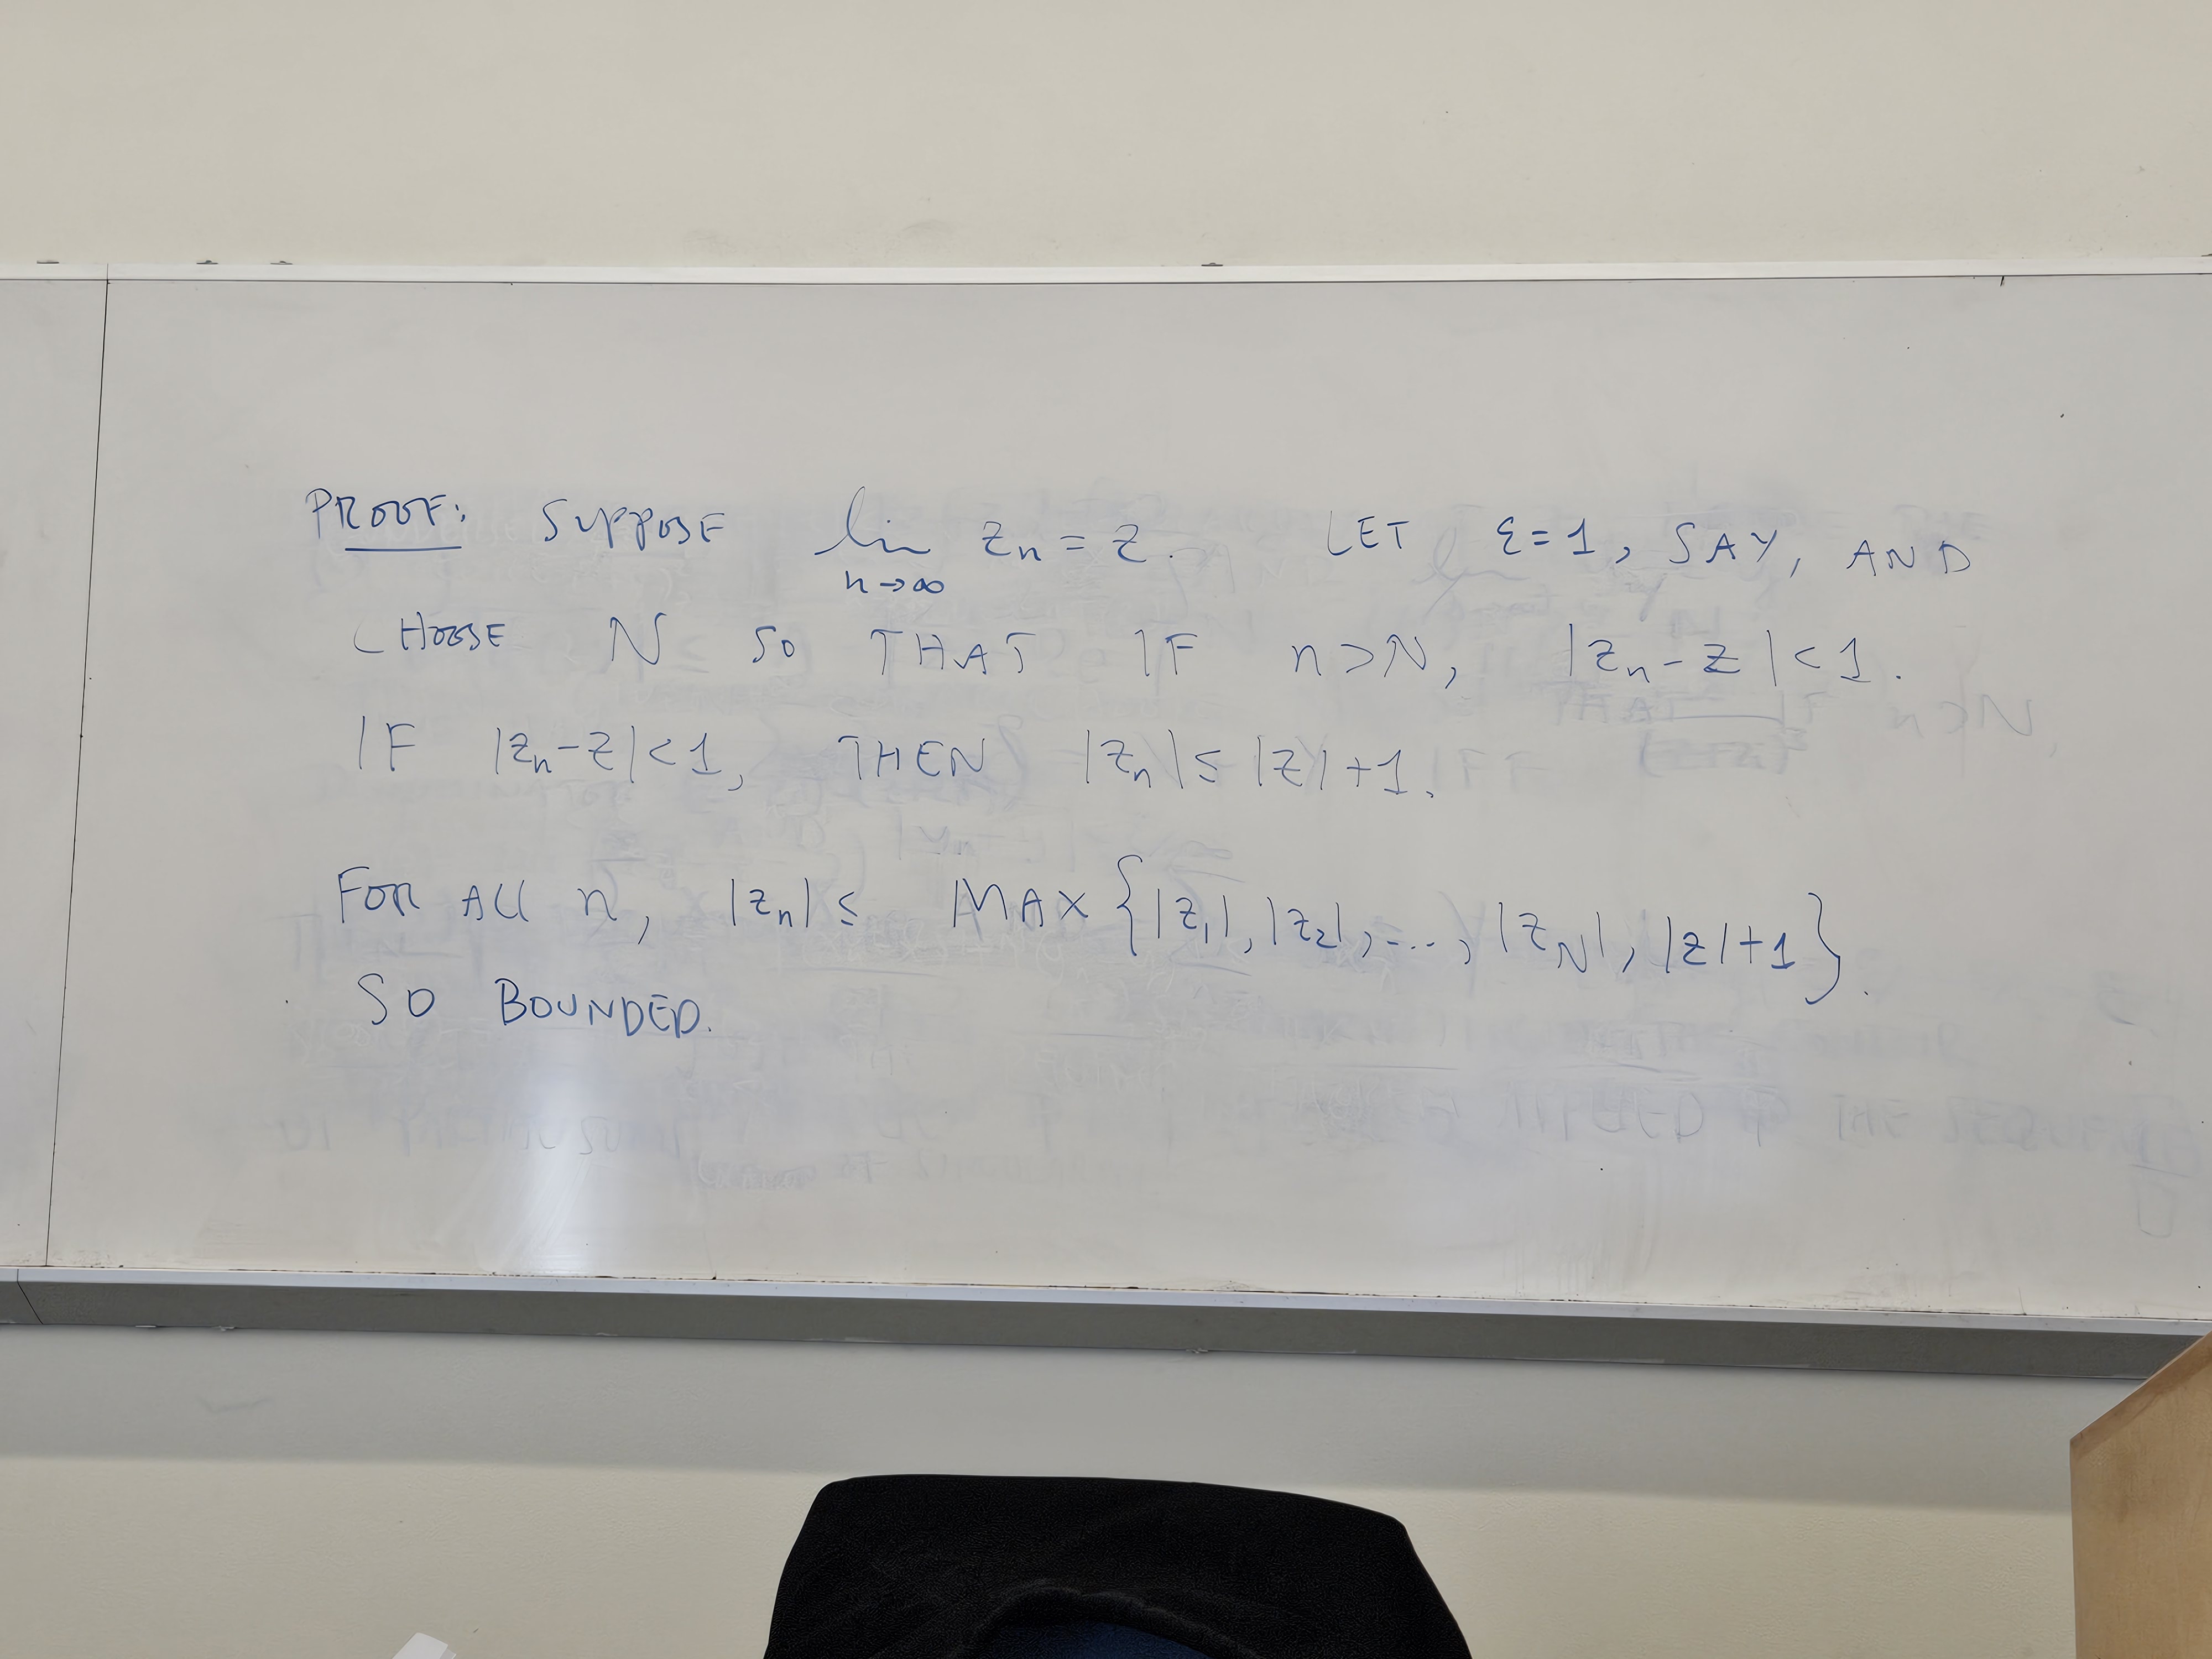 PROOF: SUPPOSE lim n→∞ zn = z. LET ε=1, SAY, AND
CHOOSE N SO THAT IF n>N, |zn-z|<1.
IF |zn-z|<1, THEN |zn|≤|z|+1.
FOR ALL n, |zn|≤ MAX{|z1|,|z2|,...,|zN|,|z|+1}.
SO BOUNDED.